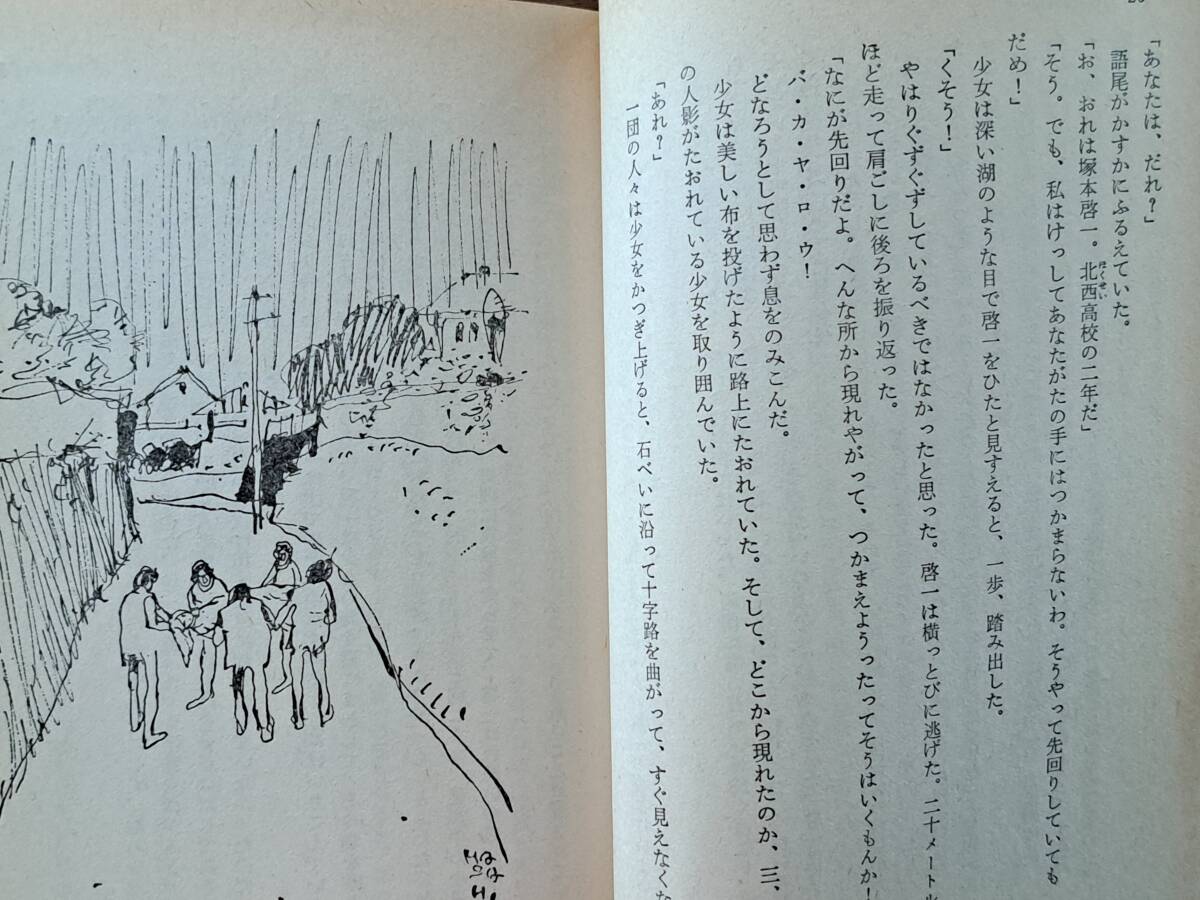 「あなたは、だれ？」
語尾がかすかにふるえていた。
「お、おれは塚本啓一。北西高校の二年だ」
ほくせい
「そう。でも、私はけっしてあなたがたの手にはつかまらないわ。そうやって先回りしていても
だめ！」
少女は深い湖のような目で啓一をひたと見すえると、一歩、踏み出した。
「くそう！」
やはりぐずぐずしているべきではなかったと思った。啓一は横っとびに逃げた。二十メートル
ほど走って肩ごしに後ろを振り返った。
「なにが先回りだよ。へんな所から現れやがって、つかまえようったってそうはいくもんか！
バ・カ・ヤ・ロ・ウ！
どなろうとして思わず息をのみこんだ。
少女は美しい布を投げたように路上にたおれていた。そして、どこから現れたのか、三、
の人影がたおれている少女を取り囲んでいた。
「あれ？」
一団の人々は少女をかつぎ上げると、石べいに沿って十字路を曲がって、すぐ見えなくな